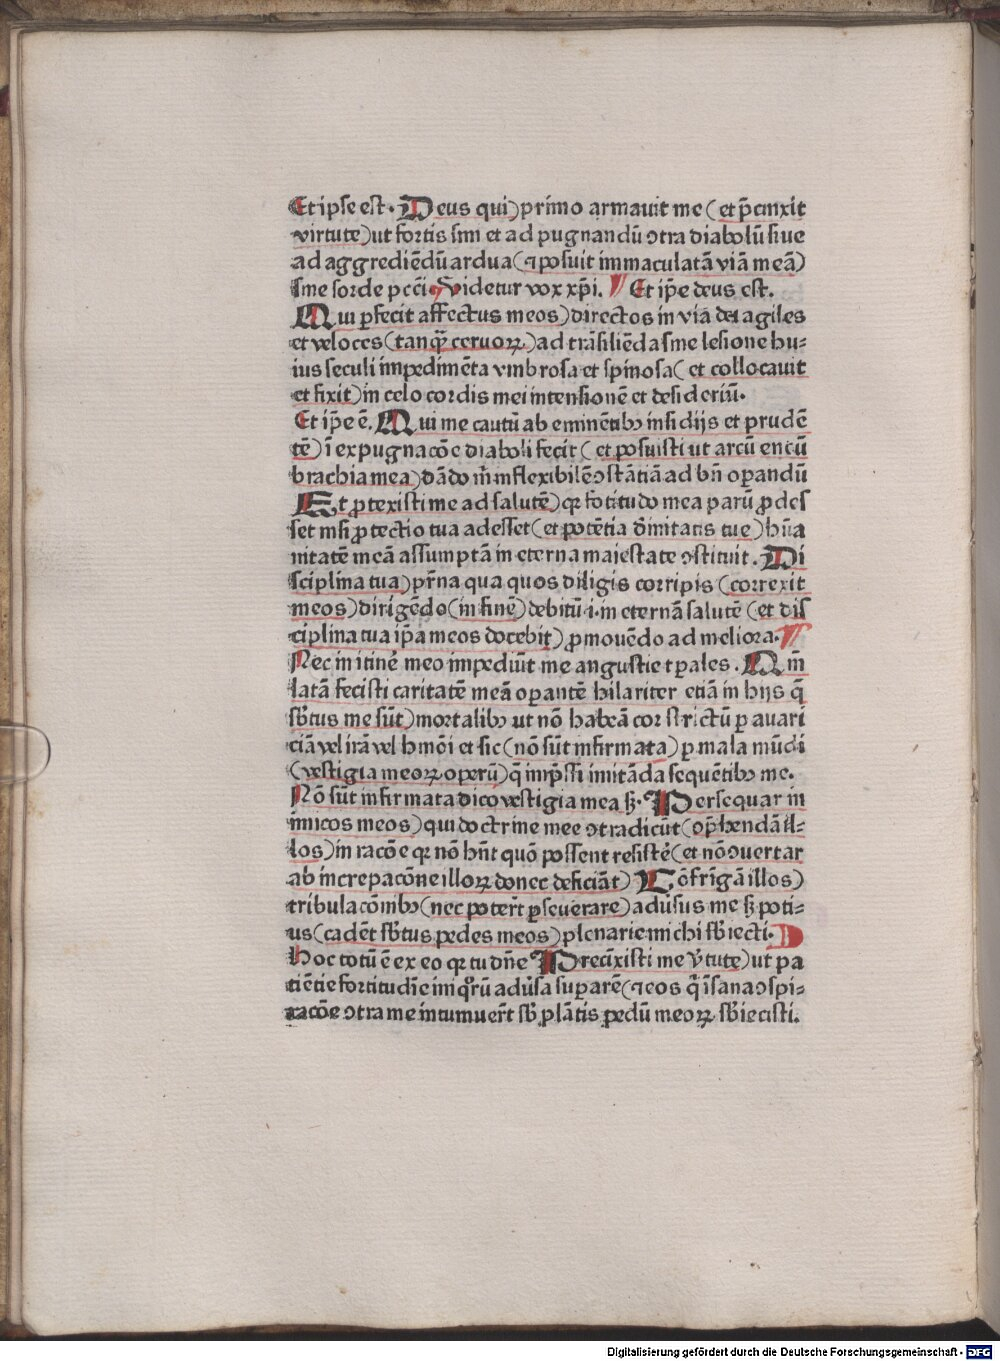 Et ipse est. Deus qui) primo armauit me (et p̄cinxit
virtute) ut fortis sim et ad pugnandū ↄtra diabolū siue
ad aggrediēdū ardua (⁊ posuit immaculatā viā meā)
sine sorde pcci. videtur vox xp̄i. Et ip̄e deus est.
Qui ꝑfecit affectus meos) directos in viā dei agiles
et veloces (tanq̄ꝫ ceruoꝝ) ad trāsiliēda sine lesione hu⸗
ius seculi impedimēta vmbrosa et spinosa (et collocauit
et fixit) in celo cordis mei intensionē et desideriū.
Et ip̄e ē. Qui me cautū ab eminētibꝰ insidijs et prudē
tē) ī expugnacōe diaboli fecit (et posuisti ut arcū eneū
brachia mea) dādo m̄ inflexibilē ↄstātiā ad bn̄ oꝑandū
Et ꝓtexisti me ad salutē) qꝛ fotitudo mea parū ꝓdes
set nisi ꝓtectio tua adesset (et potētia diuinitatis tue) hūa
nitatē meā assumptā in eterna maiestate ↄstituit. Di
sciplina tua) pr̄na qua quos diligis corripis (correxit
meos) dirigēdo (in finē) debitū .i. in eternā salutē (et dis
ciplina tua ip̄a meos docebit) ꝓmouēdo ad meliora.
Nec in itinē meo impediūt me angustie tꝑales. Qm̄
latā fecisti caritatē meā oꝑantē hilariter etiā in hijs q̄
sb̄tus me sūt) mortalibꝰ ut nō habeā cor strictū ꝑ auari
ciā vel irā vel hmōi et sic (nō sūt infirmata) ꝑ mala mūdi
(vestigia meoꝝ operū) q̄ imp̄ssi imitāda sequētibꝰ me.
Nō sūt infirmata dico vestigia mea sꝫ. Persequar in
imicos meos) qui doctrine mee ↄtradicūt (ↄp̄hendā il⸗
los) in racōe qꝛ nō hn̄t quō possent resistē (et nō ↄuertar
ab increpacōne illoꝝ donec deficiāt) Cōfrīgā illos)
tribulacōnibꝰ (nec poter̄t ꝑseuerare) adūsus me sꝫ poti⸗
us (cadēt sb̄tus pedes meos) plenarie michi sb̄iecti.
Hoc totū ē ex eo qꝛ tu dn̄e Precīxisti me v̄tute) ut pa
tiētie fortitudīe inimicoꝝ adūsa suꝑarē (⁊ eos q̄ īsana ↄspi⸗
racōe ↄtra me intumuer̄t sb̄ plātis pedū meoꝝ sb̄iecisti.
Digitalisierung gefördert durch die Deutsche Forschungsgemeinschaft - DFG